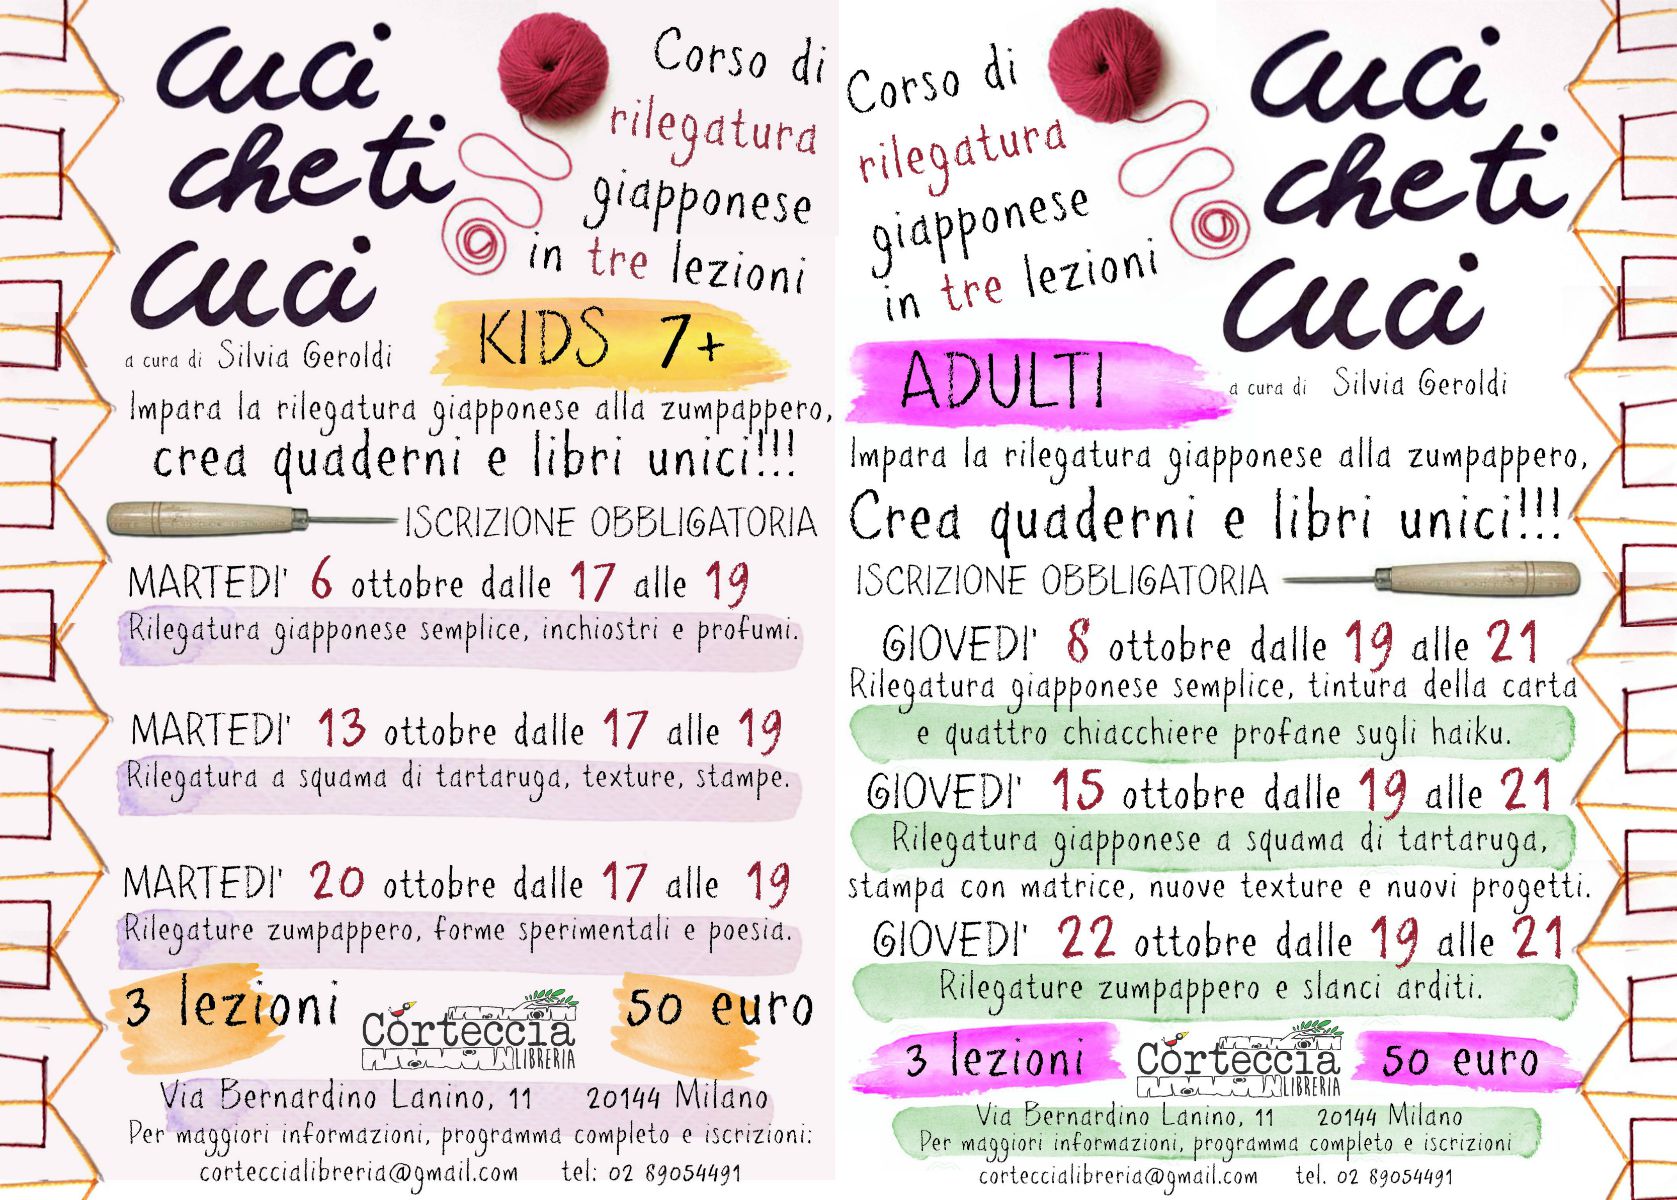 cuci
che ti
cuci
a cura di Silvia Geroldi
Corso di
rilegatura
giapponese
in tre lezioni
KIDS 7+
Impara la rilegatura giapponese alla zumpappero,
crea quaderni e libri unici!!!
ISCRIZIONE OBBLIGATORIA
MARTEDI' 6 ottobre dalle 17 alle 19
Rilegatura giapponese semplice, inchiostri e profumi.
MARTEDI' 13 ottobre dalle 17 alle 19
Rilegatura a squama di tartaruga, texture, stampe.
MARTEDI' 20 ottobre dalle 17 alle 19
Rilegature zumpappero, forme sperimentali e poesia.
3 lezioni
Corteccia
LIBRERIA
50 euro
Via Bernardino Lanino, 11 20144 Milano
Per maggiori informazioni, programma completo e iscrizioni:
corteccialibreria@gmail.com tel: 02 89054491
Corso di
rilegatura
giapponese
in tre lezioni
cuci
che ti
cuci
ADULTI
a cura di Silvia Geroldi
Impara la rilegatura giapponese alla zumpappero,
Crea quaderni e libri unici!!!
ISCRIZIONE OBBLIGATORIA
GIOVEDI' 8 ottobre dalle 19 alle 21
Rilegatura giapponese semplice, tintura della carta
e quattro chiacchiere profane sugli haiku.
GIOVEDI' 15 ottobre dalle 19 alle 21
Rilegatura giapponese a squama di tartaruga,
stampa con matrice, nuove texture e nuovi progetti.
GIOVEDI' 22 ottobre dalle 19 alle 21
Rilegature zumpappero e slanci arditi.
3 lezioni
Corteccia
LIBRERIA
50 euro
Via Bernardino Lanino, 11 20144 Milano
Per maggiori informazioni, programma completo e iscrizioni
corteccialibreria@gmail.com tel. 02 89054491